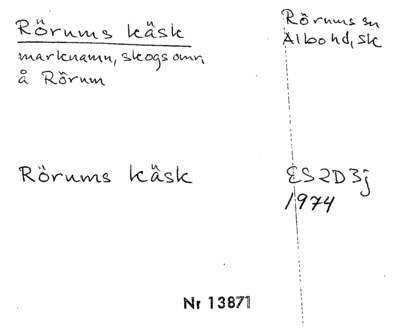 Rörums käsk
marknamn, skogsomr
å Rörum
Rörums sn
Albo hd, Sk
Rörums käsk
ES2D3j
1974
Nr 13871